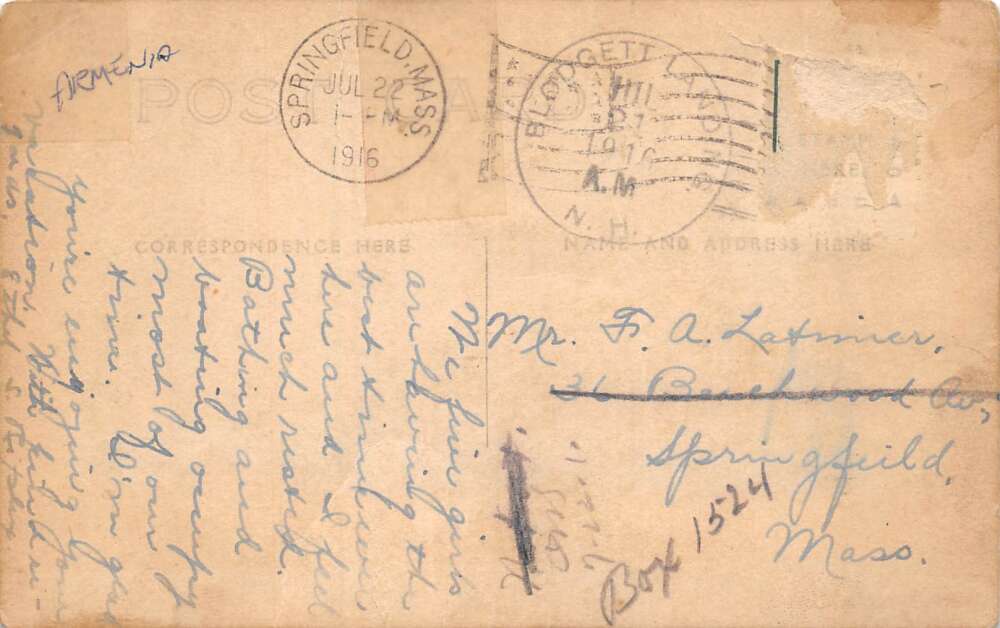 ARMENIA
POST CARD
SPRINGFIELD, MASS.
JUL 22
1916
BLODGETT
1916
A.M.
N.H.
CORRESPONDENCE HERE
NAME AND ADDRESS HERE
We five girls
are having the
best time
here and I feel
much rested.
Bathing and
boating occupy
most of our
time. I'm glad
you're enjoying your
vacation. With
Mr. F. A. Latimer,
36 Beechwood Av.,
Springfield,
Mass.
Box 1524